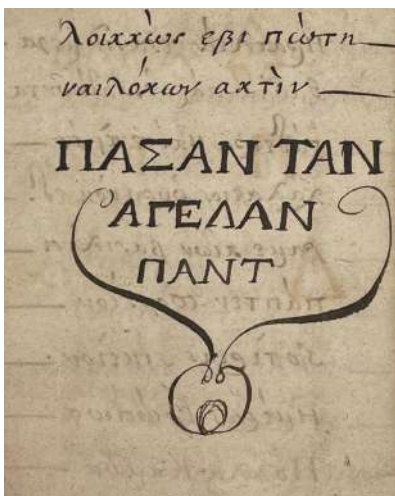 λοιχχὼς εβι πὼτη
ναιλόχων ακτὶν
ΠΑΣΑΝ ΤΑΝ
ΑΓΕΛΑΝ
ΠΑΝΤ